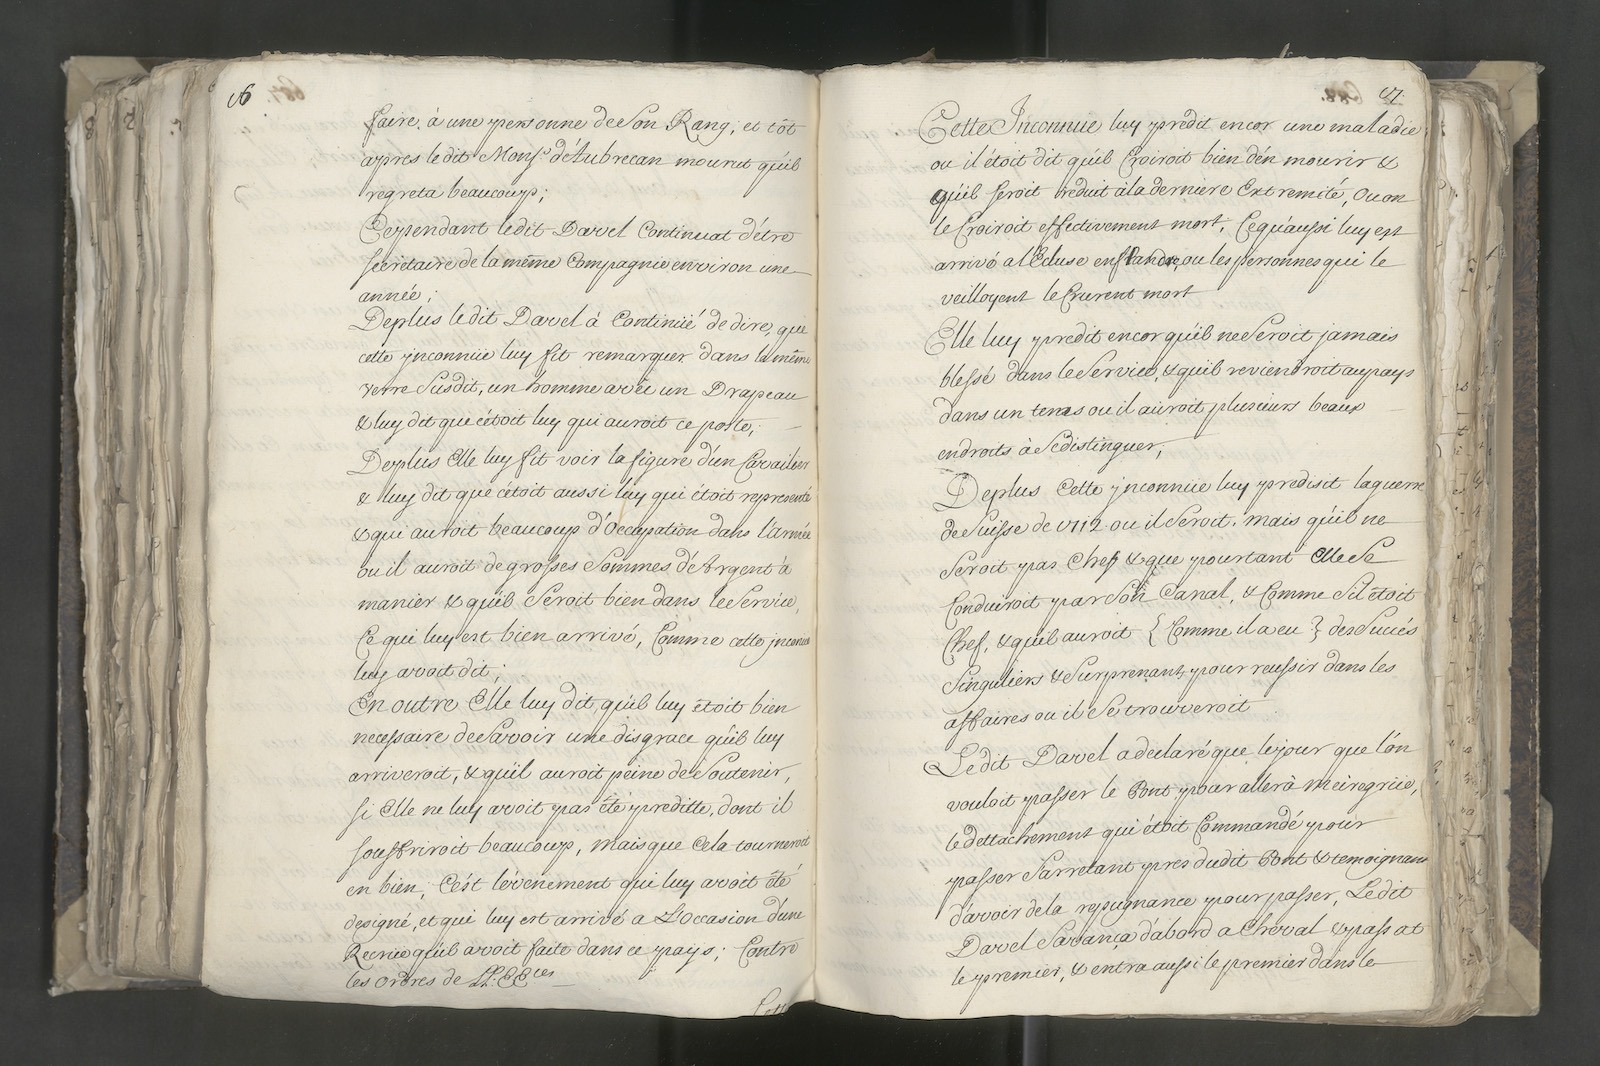 faire, à une personne de Son Rang, et tôt
apres ledit Mons.r d'Aubrecan mourut qu'il
regreta beaucoup;
Cependant ledit Davel Continuat d'étre
secretaire de la même Compagnie environ une
année;
Deplus ledit Davel à Continüé de dire, que
cette jnconnüe luy fit remarquer dans le même
verre Susdit, un homme avec un Drapeau
& luy dit que c'étoit luy qui auroit ce poste;
Deplus Elle luy fit voir la figure d'un Cavailier
& luy dit que c'étoit aussi luy qui étoit representé
& qui auroit beaucoup d'Occupation dans l'Armée
ou il auroit de grosses Sommes d'Argent à
manier & qu'il Seroit bien dans le Service,
Ce qui luy est bien arrivé, Comme cette jnconnue
luy avoit dit;
En outre Elle luy dit qu'il luy étoit bien
necessaire de Savoir une disgrace qu'il luy
arriveroit, & qu'il auroit peine de Soutenir,
si Elle ne luy avoit pas été preditte, dont il
souffriroit beaucoup, mais que Cela tourneroit
en bien; C'est l'évenement qui luy avoit été
designé, et qui luy est arrivé a L'Occasion d'une
Recrüe qu'il avoit faite dans ce pays; Contre
les ordres de LL.EE.ces
Cette
Cette Jnconnüe luy predit encor une maladie
ou il étoit dit qu'il Croiroit bien d'en mourir &
qu'il seroit reduit à la derniere Extremité, Ou on
le Croiroit effectivement mort, Ce qu'aussi luy est
arrivé a l'Ecluse en flandre, ou les personnes qui le
veilloyent le Crurent mort
Elle luy predit encor qu'il ne Seroit jamais
blessé dans le Service, & qu'il reviendroit au pays
dans un tems ou il auroit plusieurs beaux
endroits à Se distinguer;
Deplus Cette jnconnüe luy predisit la guerre
de Suisse de 1712 ou il Seroit, mais qu'il ne
Seroit pas Chef & que pourtant Elle Se
Conduiroit par Son Canal, & Comme S'il étoit
Chef, & qu'il auroit { Comme il a eu } des Succés
Singuliers & Surprenant, pour reussir dans les
affaires ou il Se trouveroit
Ledit Davel a declaré que le jour que l'on
vouloit passer le Pont pour aller à meiregrüe,
le dettachement qui étoit Commandé pour
passer S'arretant pres dudit Pont & temoignant
d'avoir de la repugnance pour passer, Ledit
Davel S'avança d'abord a Cheval & passat
le premier, & entra aussi le premier dans le